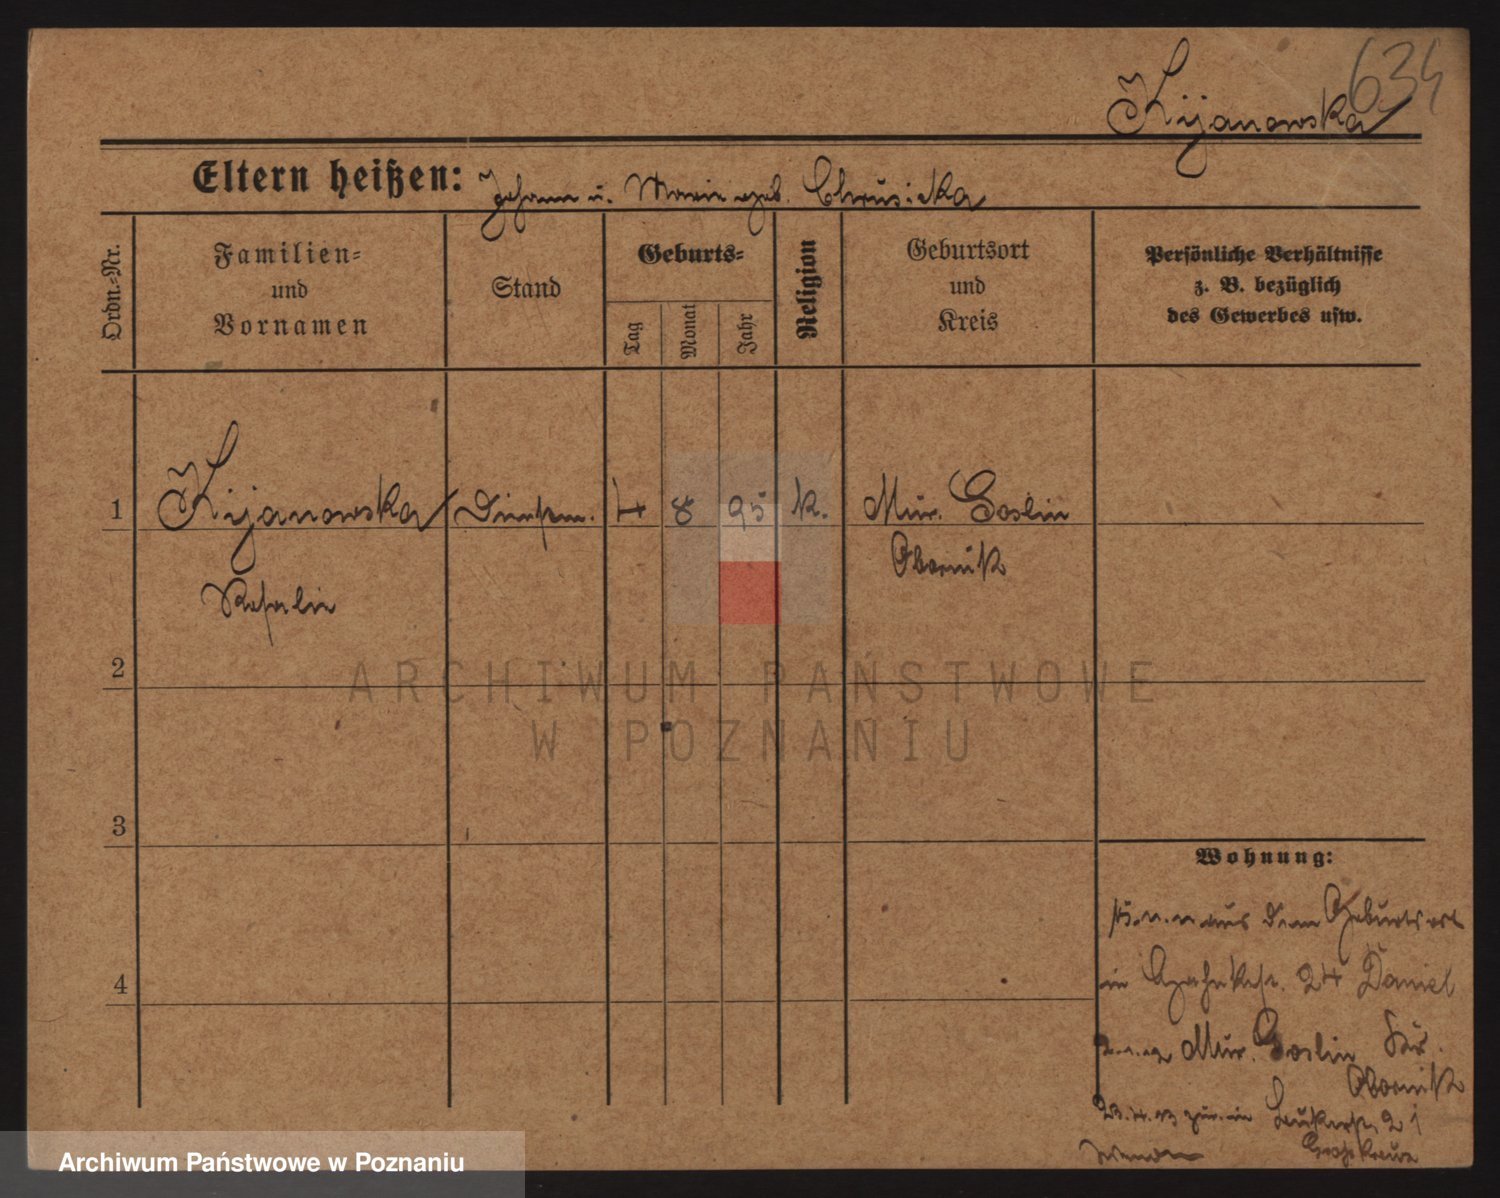 634
Kijanowska
Eltern heißen: Johann u. Marie geb. Chrusicka
Ordn.-Nr.
Familien-
und
Vornamen
Stand
Geburts-
Tag
Monat
Jahr
Religion
Geburtsort
und
Kreis
Persönliche Verhältnisse
z. B. bezüglich
des Gewerbes usw.
1 Kijanowska Dienstm. 4 8 95 k. Mur. Goslin
Obornik
Rosalie
2
3
4
Wohnung:
aus dem Geburtsort
in 24 Daniel
Mur. Goslin Kr.
Obornik
zur. in 21
ARCHIWUM PAŃSTWOWE
W POZNANIU
Archiwum Państwowe w Poznaniu